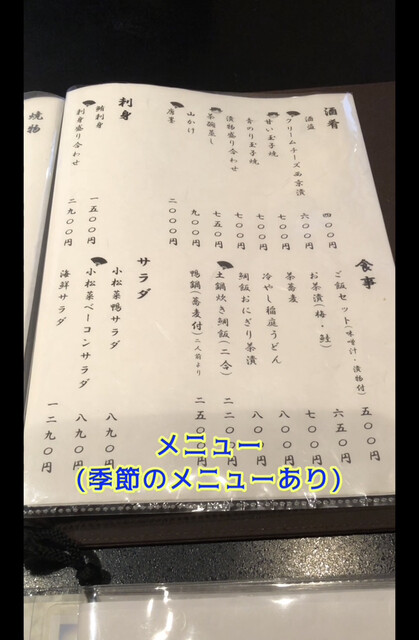 酒肴
酒盗 四〇〇円
クリームチーズ西京漬 六〇〇円
甘い玉子焼 七〇〇円
青のり玉子焼 七〇〇円
漬物盛り合わせ 七〇〇円
茶碗蒸し 七五〇円
山かけ 九〇〇円
唐墨 二〇〇〇円
刺身
鮪刺身 一五〇〇円
刺身盛り合わせ 二九〇〇円
焼物
食事
ご飯セット(味噌汁・漬物付) 五〇〇円
お茶漬(梅・鮭) 六五〇円
茶蕎麦 七〇〇円
冷やし稲庭うどん 八〇〇円
鯛飯おにぎり茶漬 八〇〇円
土鍋炊き鯛飯(二合) 二二〇〇円
鴨鍋(蕎麦付)二人前より 二五〇〇円
サラダ
小松菜鴨サラダ 八九〇円
小松菜ベーコンサラダ 八九〇円
海鮮サラダ 一二九〇円
メニュー
(季節のメニューあり)